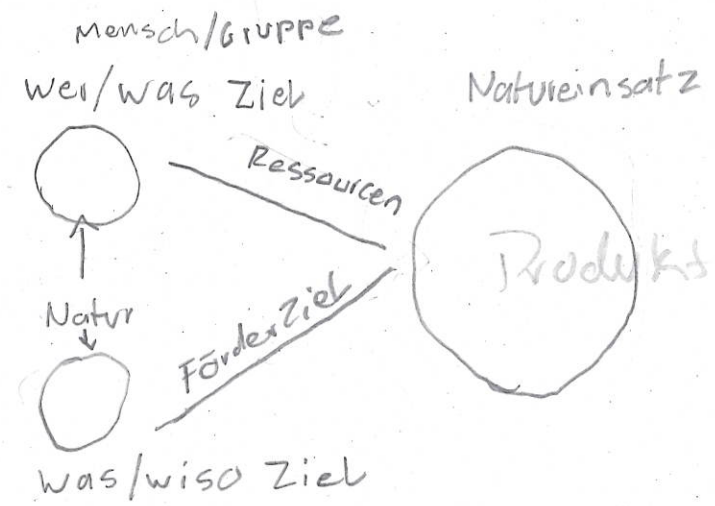 Mensch/Gruppe
Wer/was Ziel
Natureinsatz
Ressourcen
Produkt
Natur
Förderziel
was/wiso Ziel